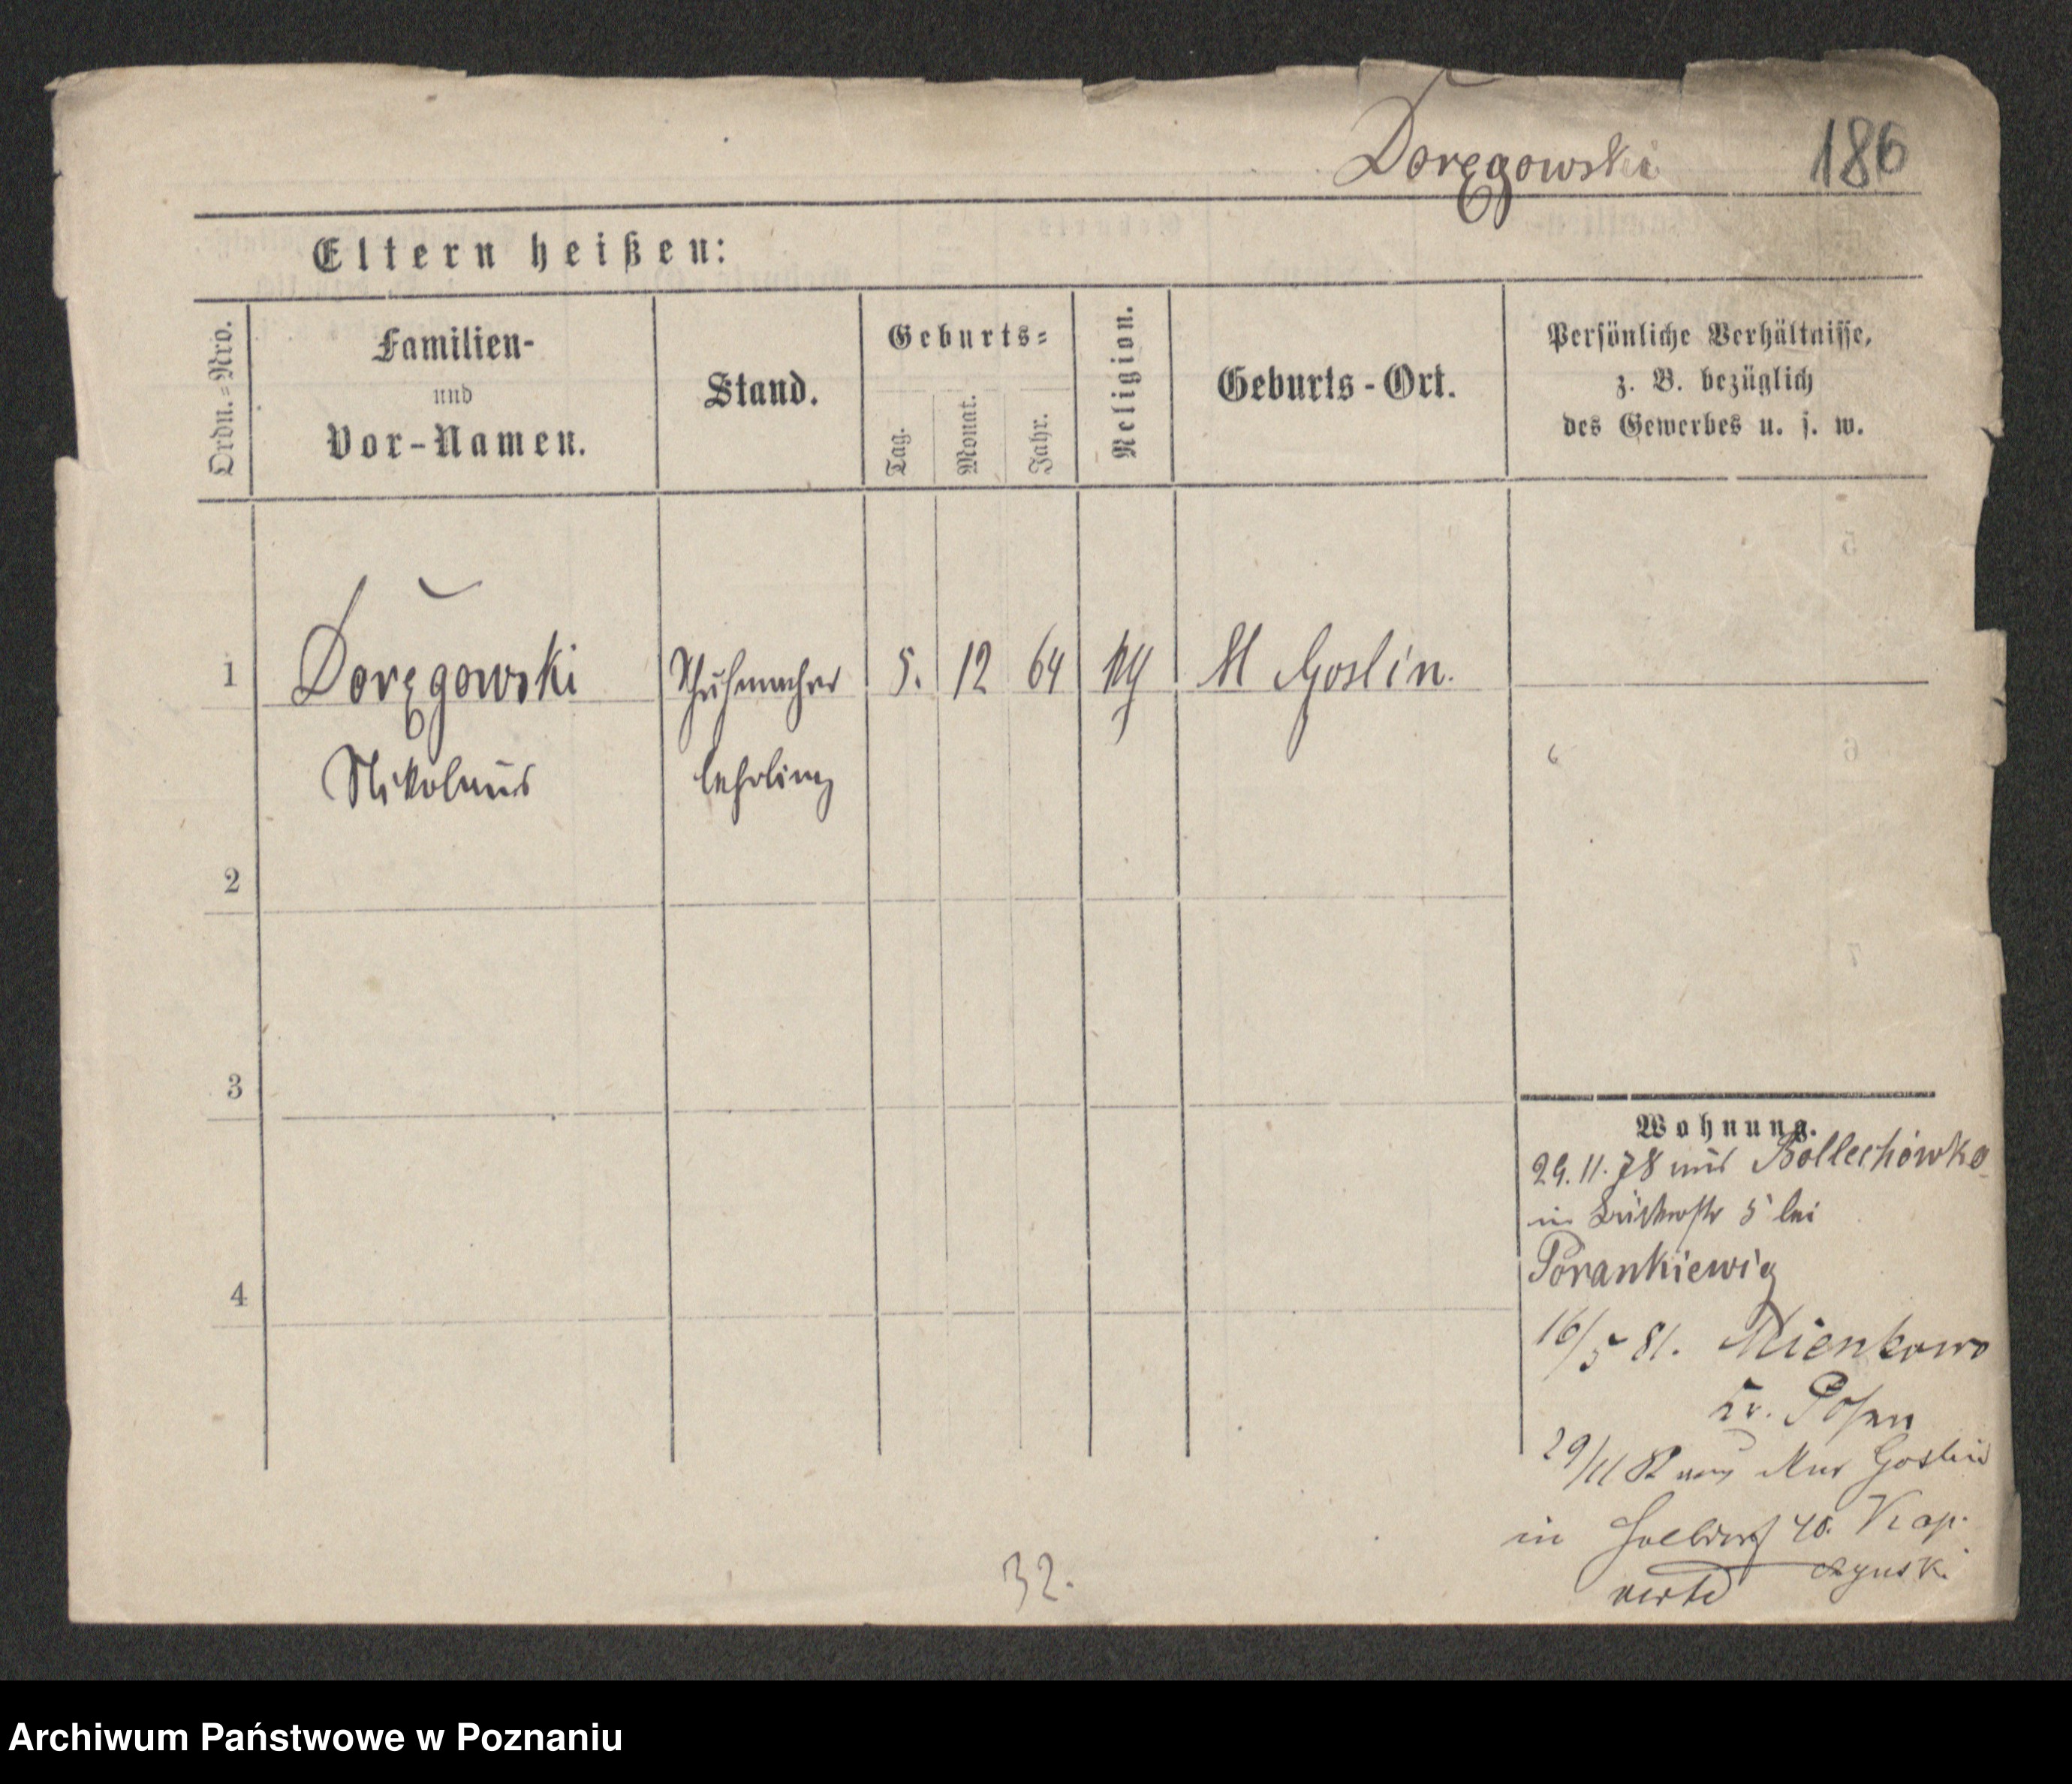 Doręgowski 186
Eltern heißen:
Ordn.=Nro.
Familien-
und
Vor-Namen.
Stand.
Geburts=
Tag.
Monat.
Jahr.
Religion.
Geburts-Ort.
Persönliche Verhältnisse,
z. B. bezüglich
des Gewerbes u. s. w.
1 Doręgowski Schuhmacher 5. 12 64 M Goslin.
Nikolaus lehrling
2
3
4
Wohnung.
29. 11. 78 aus Bollechowko
in 5 bei
Porankiewicz
16/5 81. Mienkowo
Kr. Posen
29/11 82 aus Mur Goslin
in Halbdorf 40. Kap-
czynski
verte
32.
Archiwum Państwowe w Poznaniu